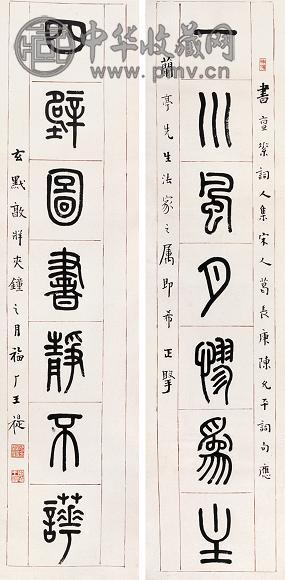 中华收藏网
書亶詞人集宋人葛長庚陳允平詞句應
一川風月為主
蘭亭先生法家之属即希正掔
四壁圖書靜不譁
玄黓敦牂夾鐘之月福厂王禔